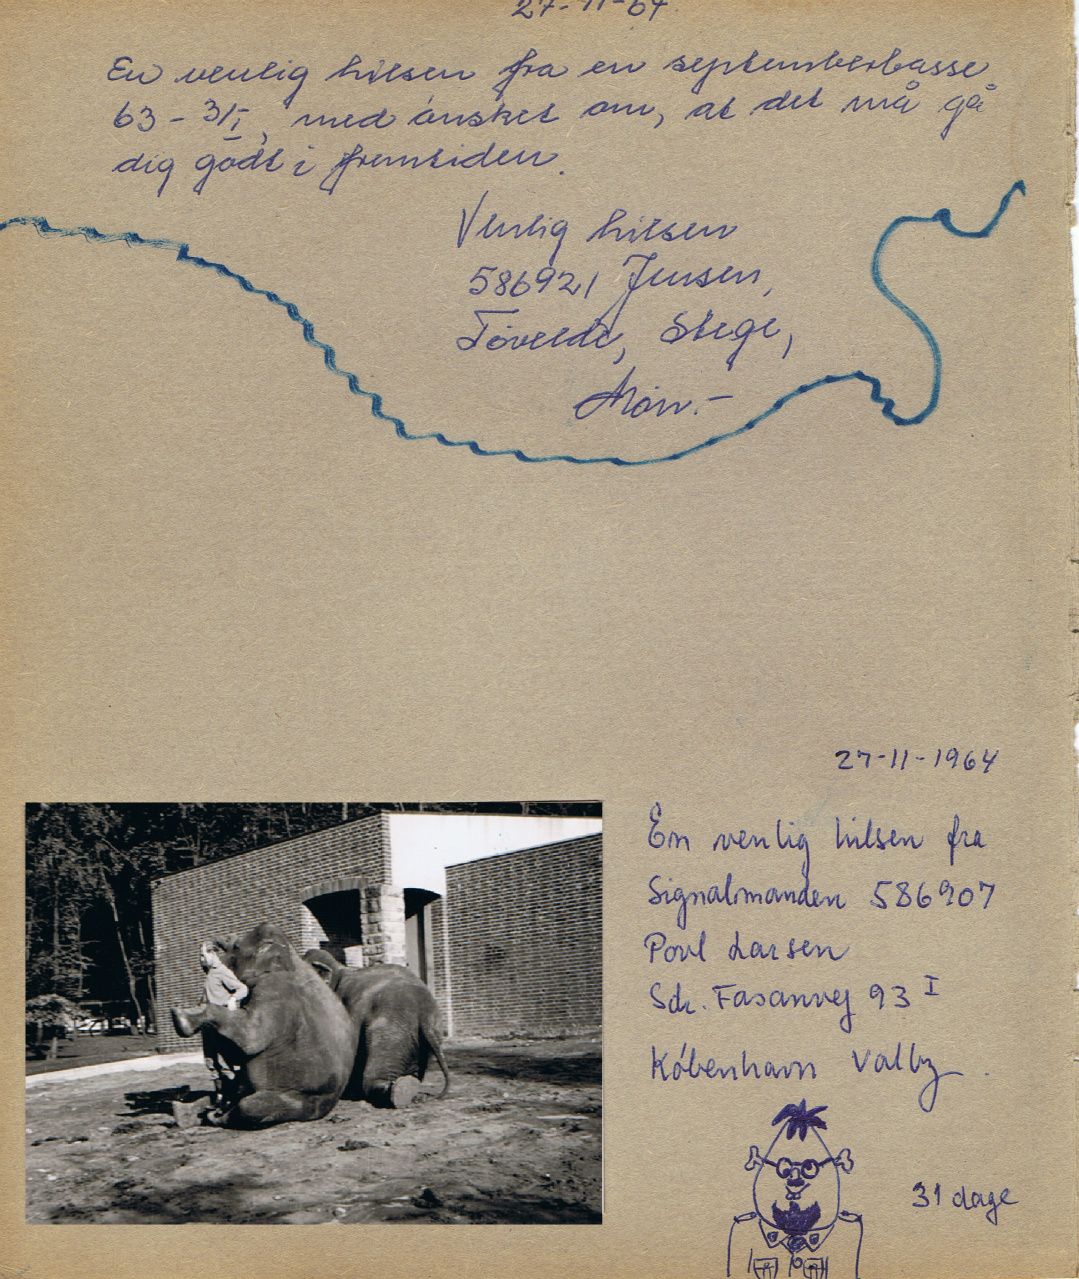 27-11-64
En venlig hilsen fra en septemberbasse
63 - 3/I, med ónsket om, at det må gå
dig godt i fremtiden.
Venlig hilsen
586921 Jensen,
Tóvelde, Stege,
Món.-
27-11-1964
En venlig hilsen fra
Signalmanden 586907
Povl Larsen
Sdr. Fasanvej 93 I
Kóbenhavn Valby.
31 dage